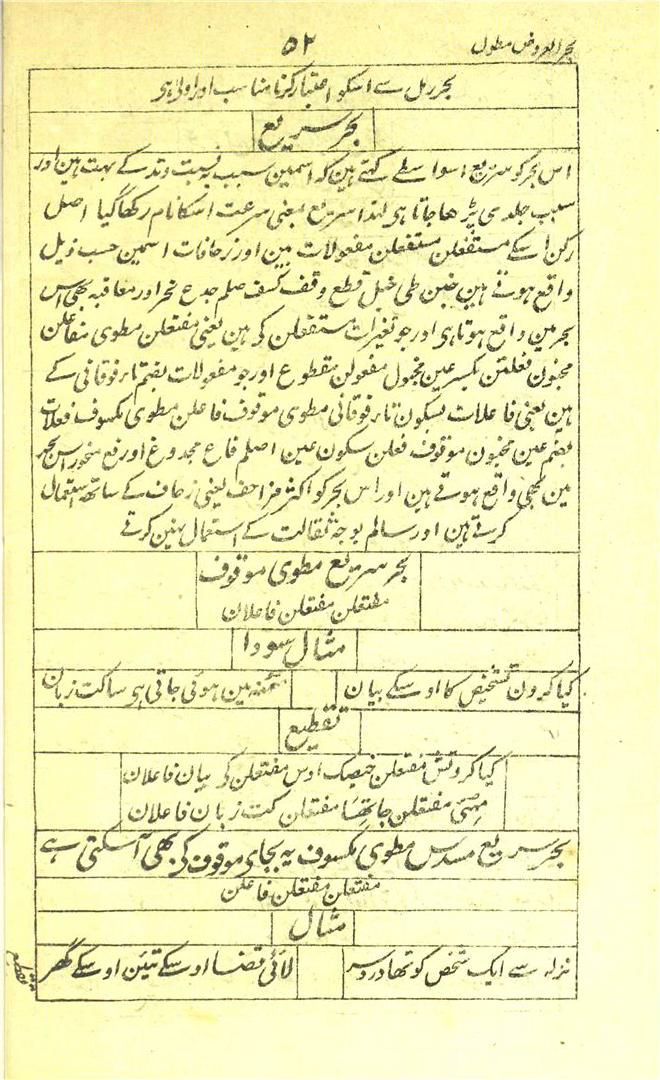 بحر العروض مطول
۵۲
بحر رمل سے اسکو اعتبار کرنا مناسب اور اولیٰ ہی
بحر سریع
اس بحر کو سریع اسواسطے کہتے ہین کہ اسمین سبب بہ نسبت وتد کے بہت ہین اور
سبب جلدی پڑھا جاتا ہی لہذا سریع بمعنی سرعت اسکا نام رکھا گیا اصل
رکن اسکے مستفعلن مستفعلن مفعولات ہین اور زحافات اسمین حسب ذیل
واقع ہوتے ہین خبن طی خبل قطع وقف کسف صلم جدع نحر اور معاقبہ بھی اس
بحر مین واقع ہوتا ہی اور جو تغیرات مستفعلن کی ہین یعنی مفتعلن مطوی مفاعلن
مخبون فعلتن بکسر عین مخبول مفعولن مقطوع اور جو مفعولات بضم تاء فوقانی کے
ہین یعنی فاعلات بسکون تاء فوقانی مطوی موقوف فاعلن مطوی مکسوف فعلات
بضم عین مخبون موقوف فعلن سکون عین اصلم فاع مجدوع اور فع منحور اس بحر
مین بھی واقع ہوتے ہین اور اس بحر کو اکثر مزاحف یعنی زحاف کے ساتھ استعمال
کرتے ہین اور سالم بوجہ ثقالت کے استعمال نہین کرتے
بحر سریع مطوی موقوف
مفتعلن مفتعلن فاعلان
مثال سودا
کیا کرون تشخیص کا اوسکے بیان
سمنھ مین ہوئی جاتی ہی ساکت زبان
تقطیع
کیا کروتش مفتعلن خیصک اوس مفتعلن کی بیان فاعلان
مفتعلن جاتھسا مفتعلن کت زبان فاعلان
بحر سریع مسدس مطوی مکسوف یہ بجای موقوف کی بھی آسکتی ہے
مفتعلن مفتعلن فاعلن
مثال
نزلہ سے ایک شخص کو تھا درد سر
لائی قضا اوسکے تیئن اوسکے گھر
تقطیع